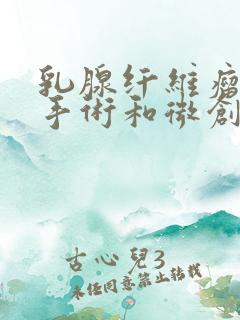 乳腺纤維瘤
手術和微創
古心兒3
未任同意禁止转载